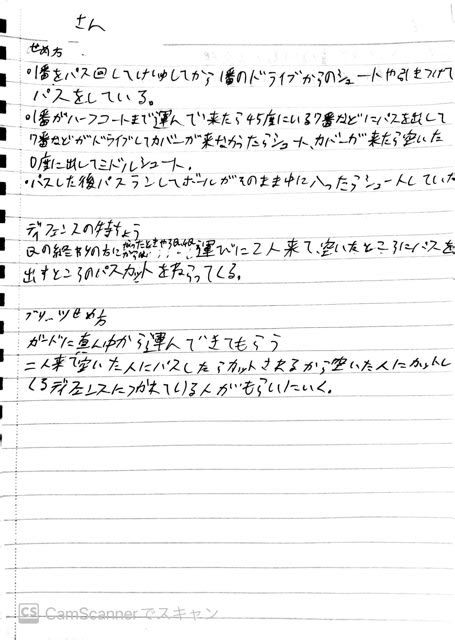 さん
せめ方
・1番をパス回してけいゆしてから1番のドライブからのシュートや引きつけて
パスをしている。
・1番がハーフコートまで運んで来たら45度にいる7番などにパスを出して
7番などがドライブしてカバーが来なかったらシュート、カバーが来たら空いた
0度に出してミドルシュート。
・パスした後パスランしてボールがそのまま中に入ったらシュートしていた
ディフェンスの特ちょう
運びに2人来て、空いたところにパスを
出すところのパスカットをねらってくる。
せめ方
ガードに真ん中から運んできてもらう
二人来て空いた人にパスしたらカットされるから空いた人にカットし
くるディフェンスにつかれている人がもらいにいく。
CS CamScannerでスキャン